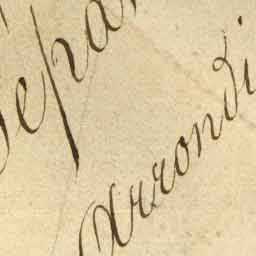 Depa
Arrondi